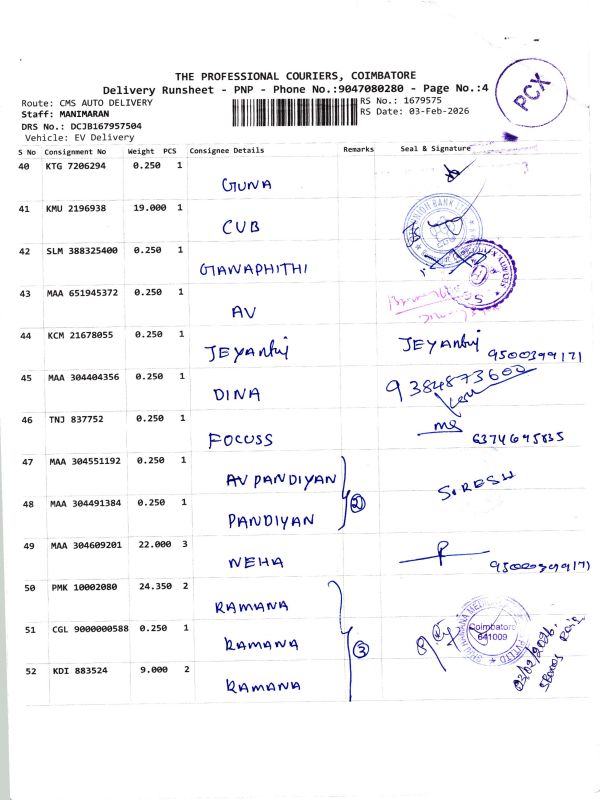 THE PROFESSIONAL COURIERS, COIMBATORE
Delivery Runsheet - PNP - Phone No.:9047080280 - Page No.:4
PCX
Route: CMS AUTO DELIVERY
RS No.: 1679575
Staff: MANIMARAN
RS Date: 03-Feb-2026
DRS No.: DCJB167957504
Vehicle: EV Delivery
S No Consignment No Weight PCS Consignee Details Remarks Seal & Signature
40 KTG 7206294 0.250 1 GUNA
41 KMU 2196938 19.000 1 CUB
42 SLM 388325400 0.250 1 GANAPHITHI
43 MAA 651945372 0.250 1 AV
44 KCM 21678055 0.250 1 JEYANTHI JEYANTHI 9500399171
45 MAA 304404356 0.250 1 DINA 9384873600
46 TNJ 837752 0.250 1 FOCUSS 6374695835
47 MAA 304551192 0.250 1 AV PANDIYAN SURESH
48 MAA 304491384 0.250 1 PANDIYAN 2
49 MAA 304609201 22.000 3 NEHA
50 PMK 10002080 24.350 2 RAMANA
51 CGL 9000000588 0.250 1 RAMANA 3
Coimbatore
641009
03/02/2026
52 KDI 883524 9.000 2 RAMANA